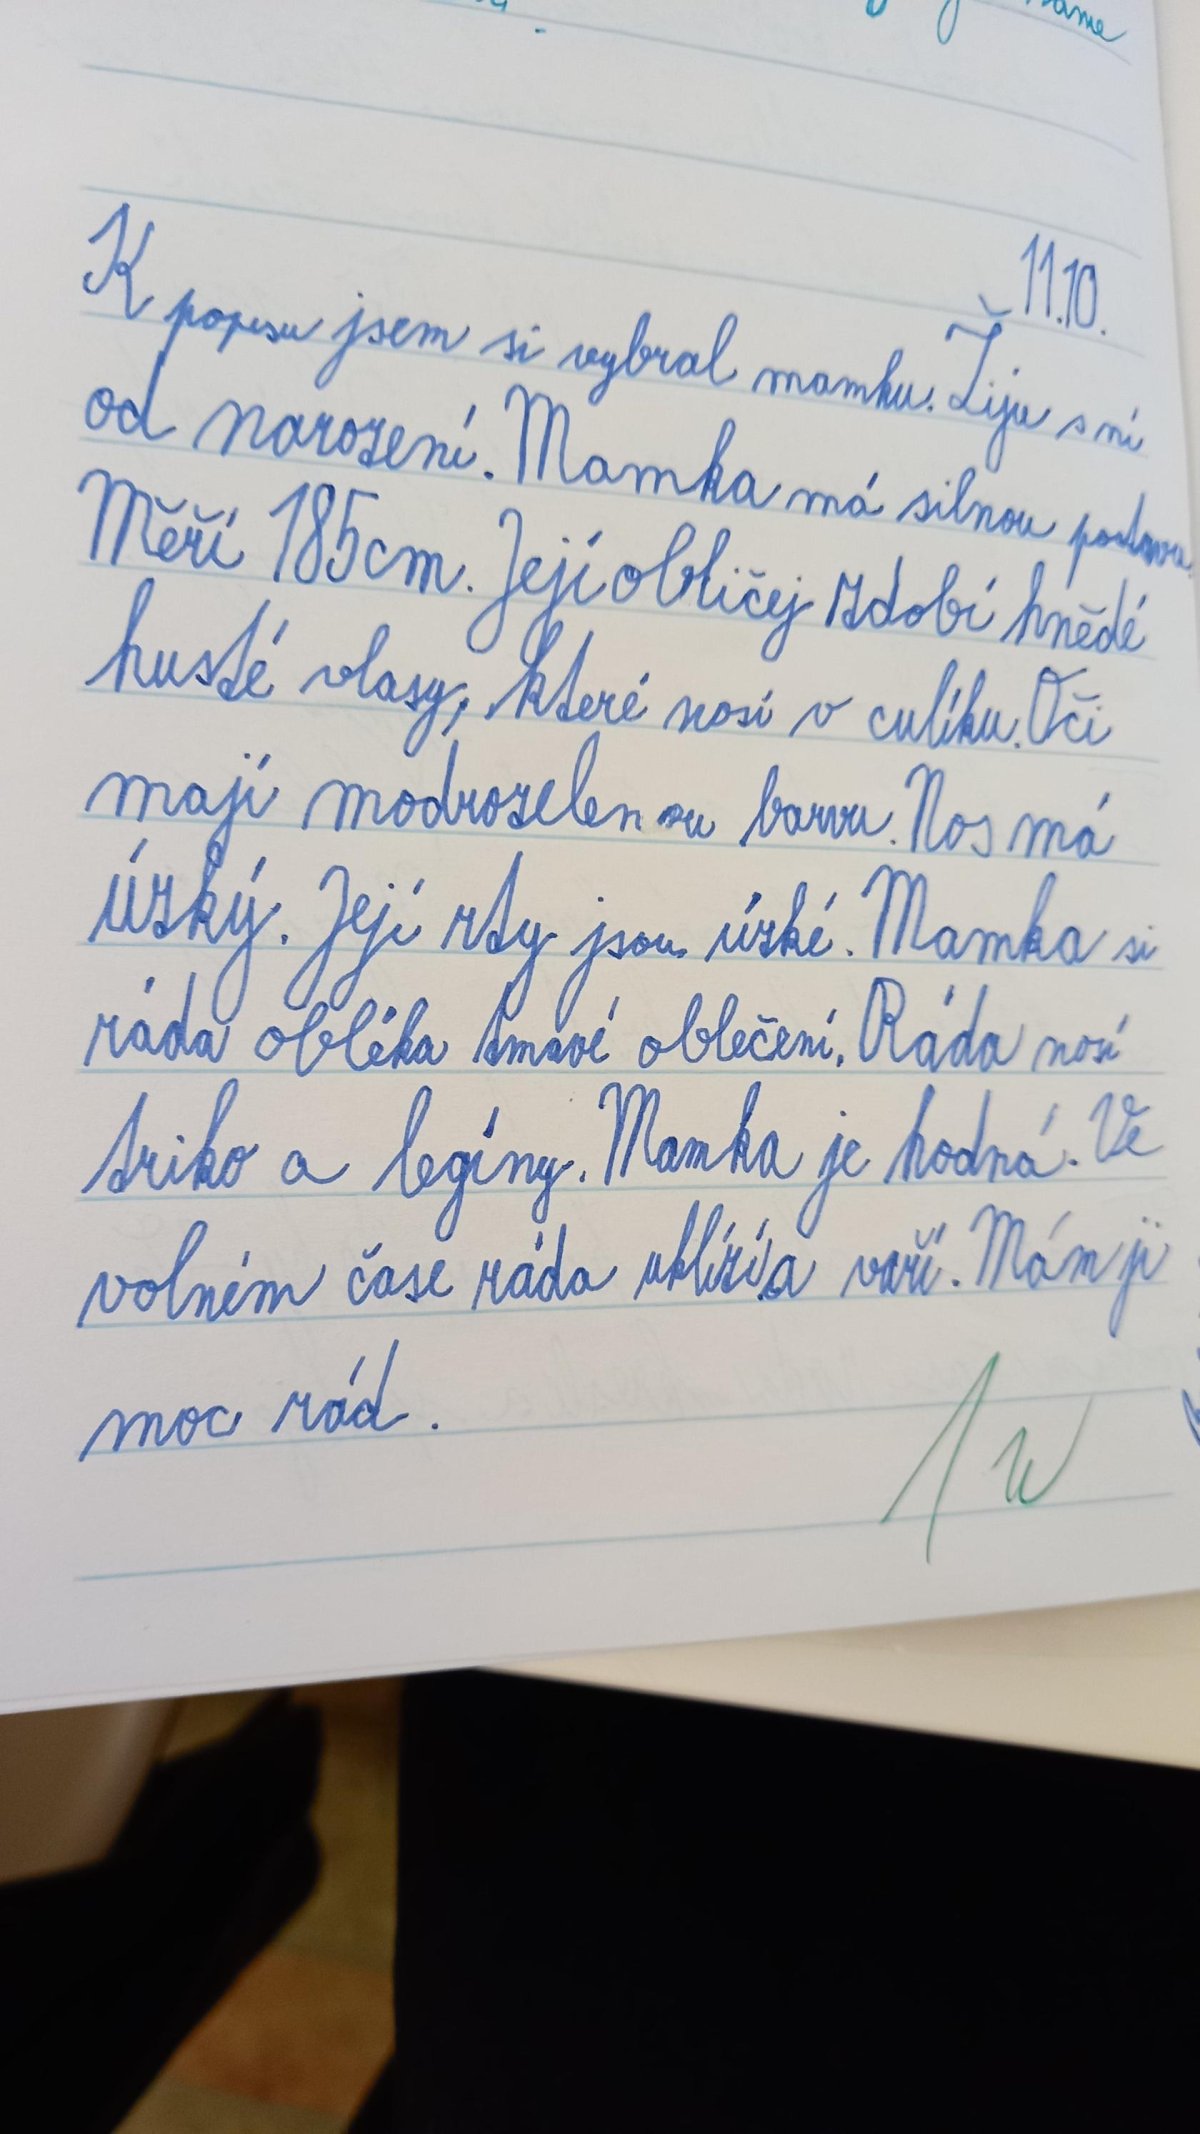 11.10.
K popisu jsem si vybral mamku. Žiju s ní
od narození. Mamka má silnou postavu.
Měří 185cm. Její obličej zdobí hnědé
husté vlasy, které nosí v culíku. Oči
mají modrozelenou barvu. Nos má
úzký. Její rty jsou úzké. Mamka si
ráda obléka tmavé oblečení. Ráda nosí
triko a legíny. Mamka je hodná. Ve
volném čase ráda uklízí a vaří. Mám ji
moc rád.
1